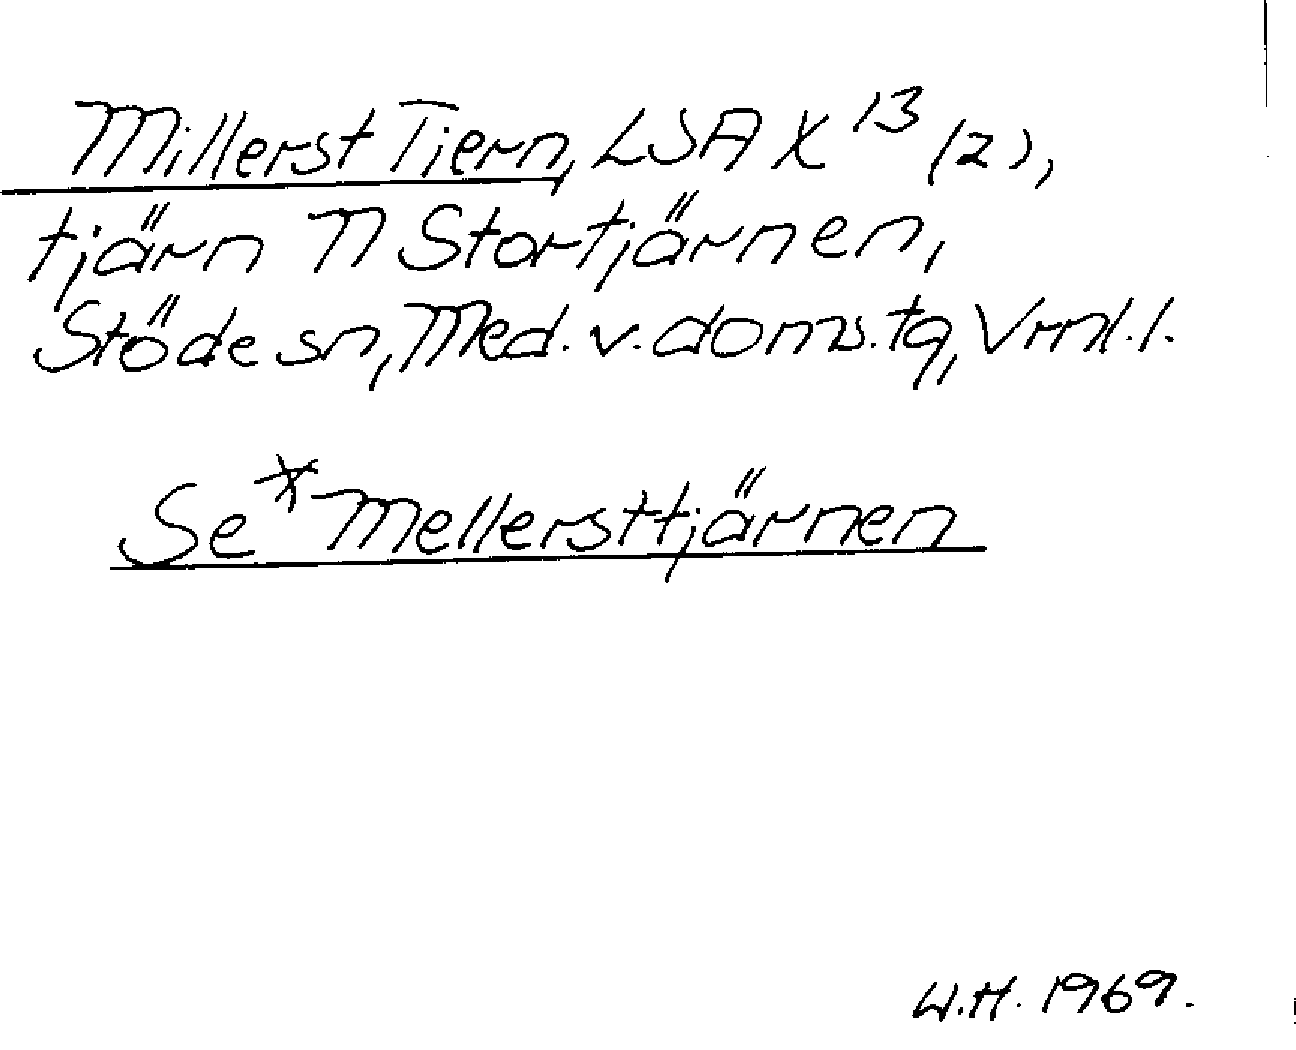 Millerst Tiern, LSA X 13 (2),
tjärn N Stortjärnen,
Stöde sn, Med. v. doms. tg, Vrml. l.
Se *Mellersttjärnen
W.H. 1969.